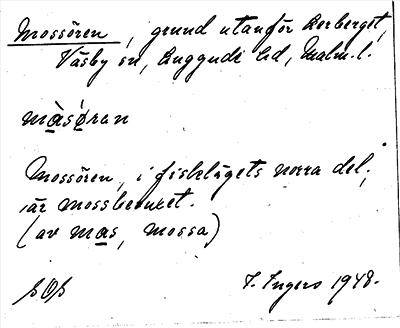 Mossören, grund utanför Lerberget,
Väsby sn, Luggude hd, Malm.l.
màsǿran
Mossören, i fiskelägets norra del,
är mossbevuxet.
(av mas, mossa)
SOS
I. Ingers 1948.